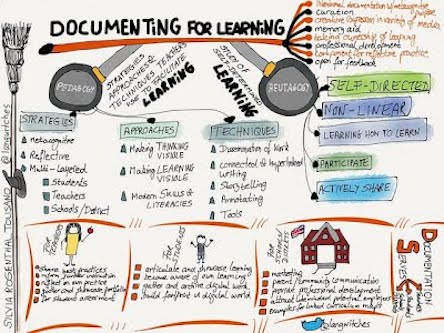 DOCUMENTING FOR LEARNING
curation
creative expression in variety of media
memory aid
taking ownership of learning
professional development
component for reflective practice
open for feedback
PEDAGOGY
STRATEGIES
APPROACHES &
TECHNIQUES TEACHERS
USE TO FACILITATE
LEARNING
STUDY OF
SELF-DETERMINED
LEARNING
HEUTAGOGY
SELF-DIRECTED
NON-LINEAR
LEARNING HOW TO LEARN
PARTICIPATE
ACTIVELY SHARE
STRATEGIES
metacognitive
Reflective
Multi-Layered
Students
Teachers
Schools/District
APPROACHES
Making THINKING
VISIBLE
Making LEARNING
VISIBLE
Modern Skills &
LITERACIES
TECHNIQUES
Dissemination of Work
connected & Hyperlinked
writing
Storytelling
Annotating
Tools
SILVIA ROSENTHAL TOLISANO @langwitches
FOR TEACHERS
share best practices
reflect on own practice
gather and showcase portfolio
for student assessment
FOR STUDENTS
articulate and showcase learning
become aware of own learning
gather and archive digital work
build footprint of digital world
FOR SCHOOLS/DISTRICTS
marketing
parent/community communication
provide professional development
examples for linked curriculum maps
DOCS SERVE
@langwitches